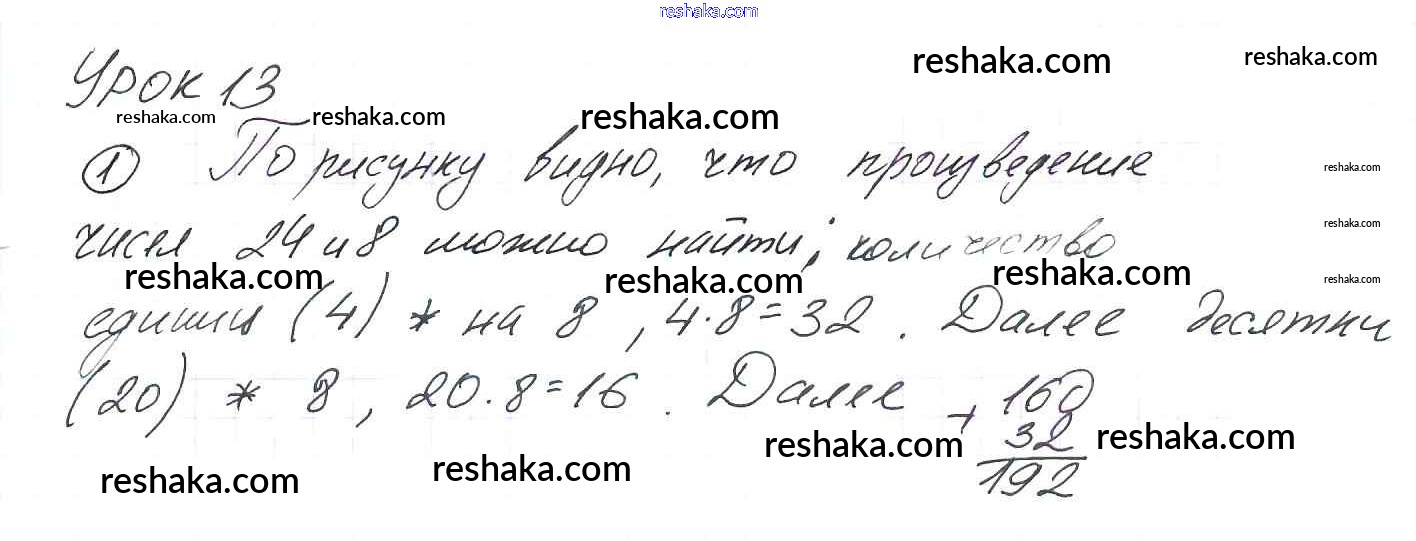 reshaka.com
reshaka.com reshaka.com
Урок 13
reshaka.com reshaka.com reshaka.com
1 По рисунку видно, что произведение
reshaka.com
чисел 24 и 8 можно найти; количество
reshaka.com
reshaka.com reshaka.com reshaka.com reshaka.com
единиц (4) * на 8, 4·8=32. Далее десятки
(20) * 8, 20·8=16. Далее + 160
32
reshaka.com reshaka.com
192
reshaka.com reshaka.com